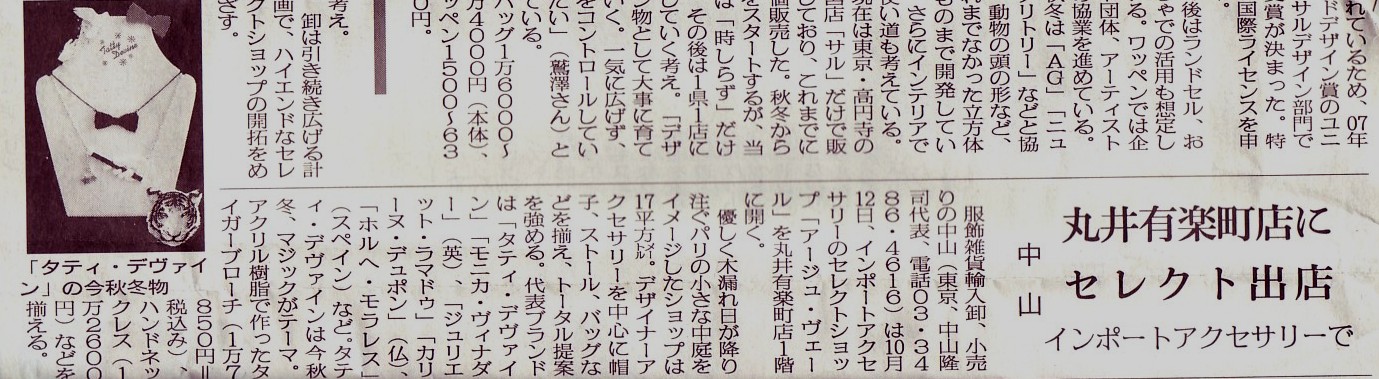 れているため、07年
ドデザイン賞のユニ
サルデザイン部門で
賞が決まった。特
国際ライセンスを申
後はランドセル、お
ゃでの活用も想定し
る。ワッペンでは企
団体、アーティスト
協業を進めている。
冬は「AG」「ニュ
リトリー」などと協
動物の頭の形など、
れまでなかった立方体
ものまで開発してい
さらにインテリアで
使い道も考えている。
現在は東京・高円寺の
店「サル」だけで販
しており、これまでに
個販売した。秋冬から
をスタートするが、当
は「時しらず」だけ
その後は1県1店に
していく考え。「デザ
ン物として大事に育て
いく。一気に広げず、
をコントロールしてい
たい」（鷲澤さん）と
ている。
バッグ1万6000〜
万4000円（本体）、
ッペン1500〜63
0円。
考え。
卸は引き続き広げる計
画で、ハイエンドなセレ
クトショップの開拓をめ
ざす。
Tatty
Devine
「タティ・デヴァイ
ン」の今秋冬物
丸井有楽町店に
セレクト出店
インポートアクセサリーで
中山
服飾雑貨輸入卸、小売
りの中山（東京、中山隆
司代表、電話03・34
86・4616）は10月
12日、インポートアクセ
サリーのセレクトショッ
プ「アージュ・ヴェー
ル」を丸井有楽町店1階
に開く。
優しく木漏れ日が降り
注ぐパリの小さな中庭を
イメージしたショップは
17平方㍍。デザイナーア
クセサリーを中心に帽
子、ストール、バッグな
どを揃え、トータル提案
を強める。代表ブランド
は「タティ・デヴァイ
ン」「モニカ・ヴィナダ
ー」（英）、「ジュリエ
ット・ラマドゥ」「カリ
ーヌ・デュポン」（仏）、
「ホルヘ・モラレス」
（スペイン）など。タテ
ィ・デヴァインは今秋
冬、マジックがテーマ。
アクリル樹脂で作ったタ
イガーブローチ（1万7
850円＝
税込み）、
ハンドネッ
クレス（1
万2600
円）などを
揃える。